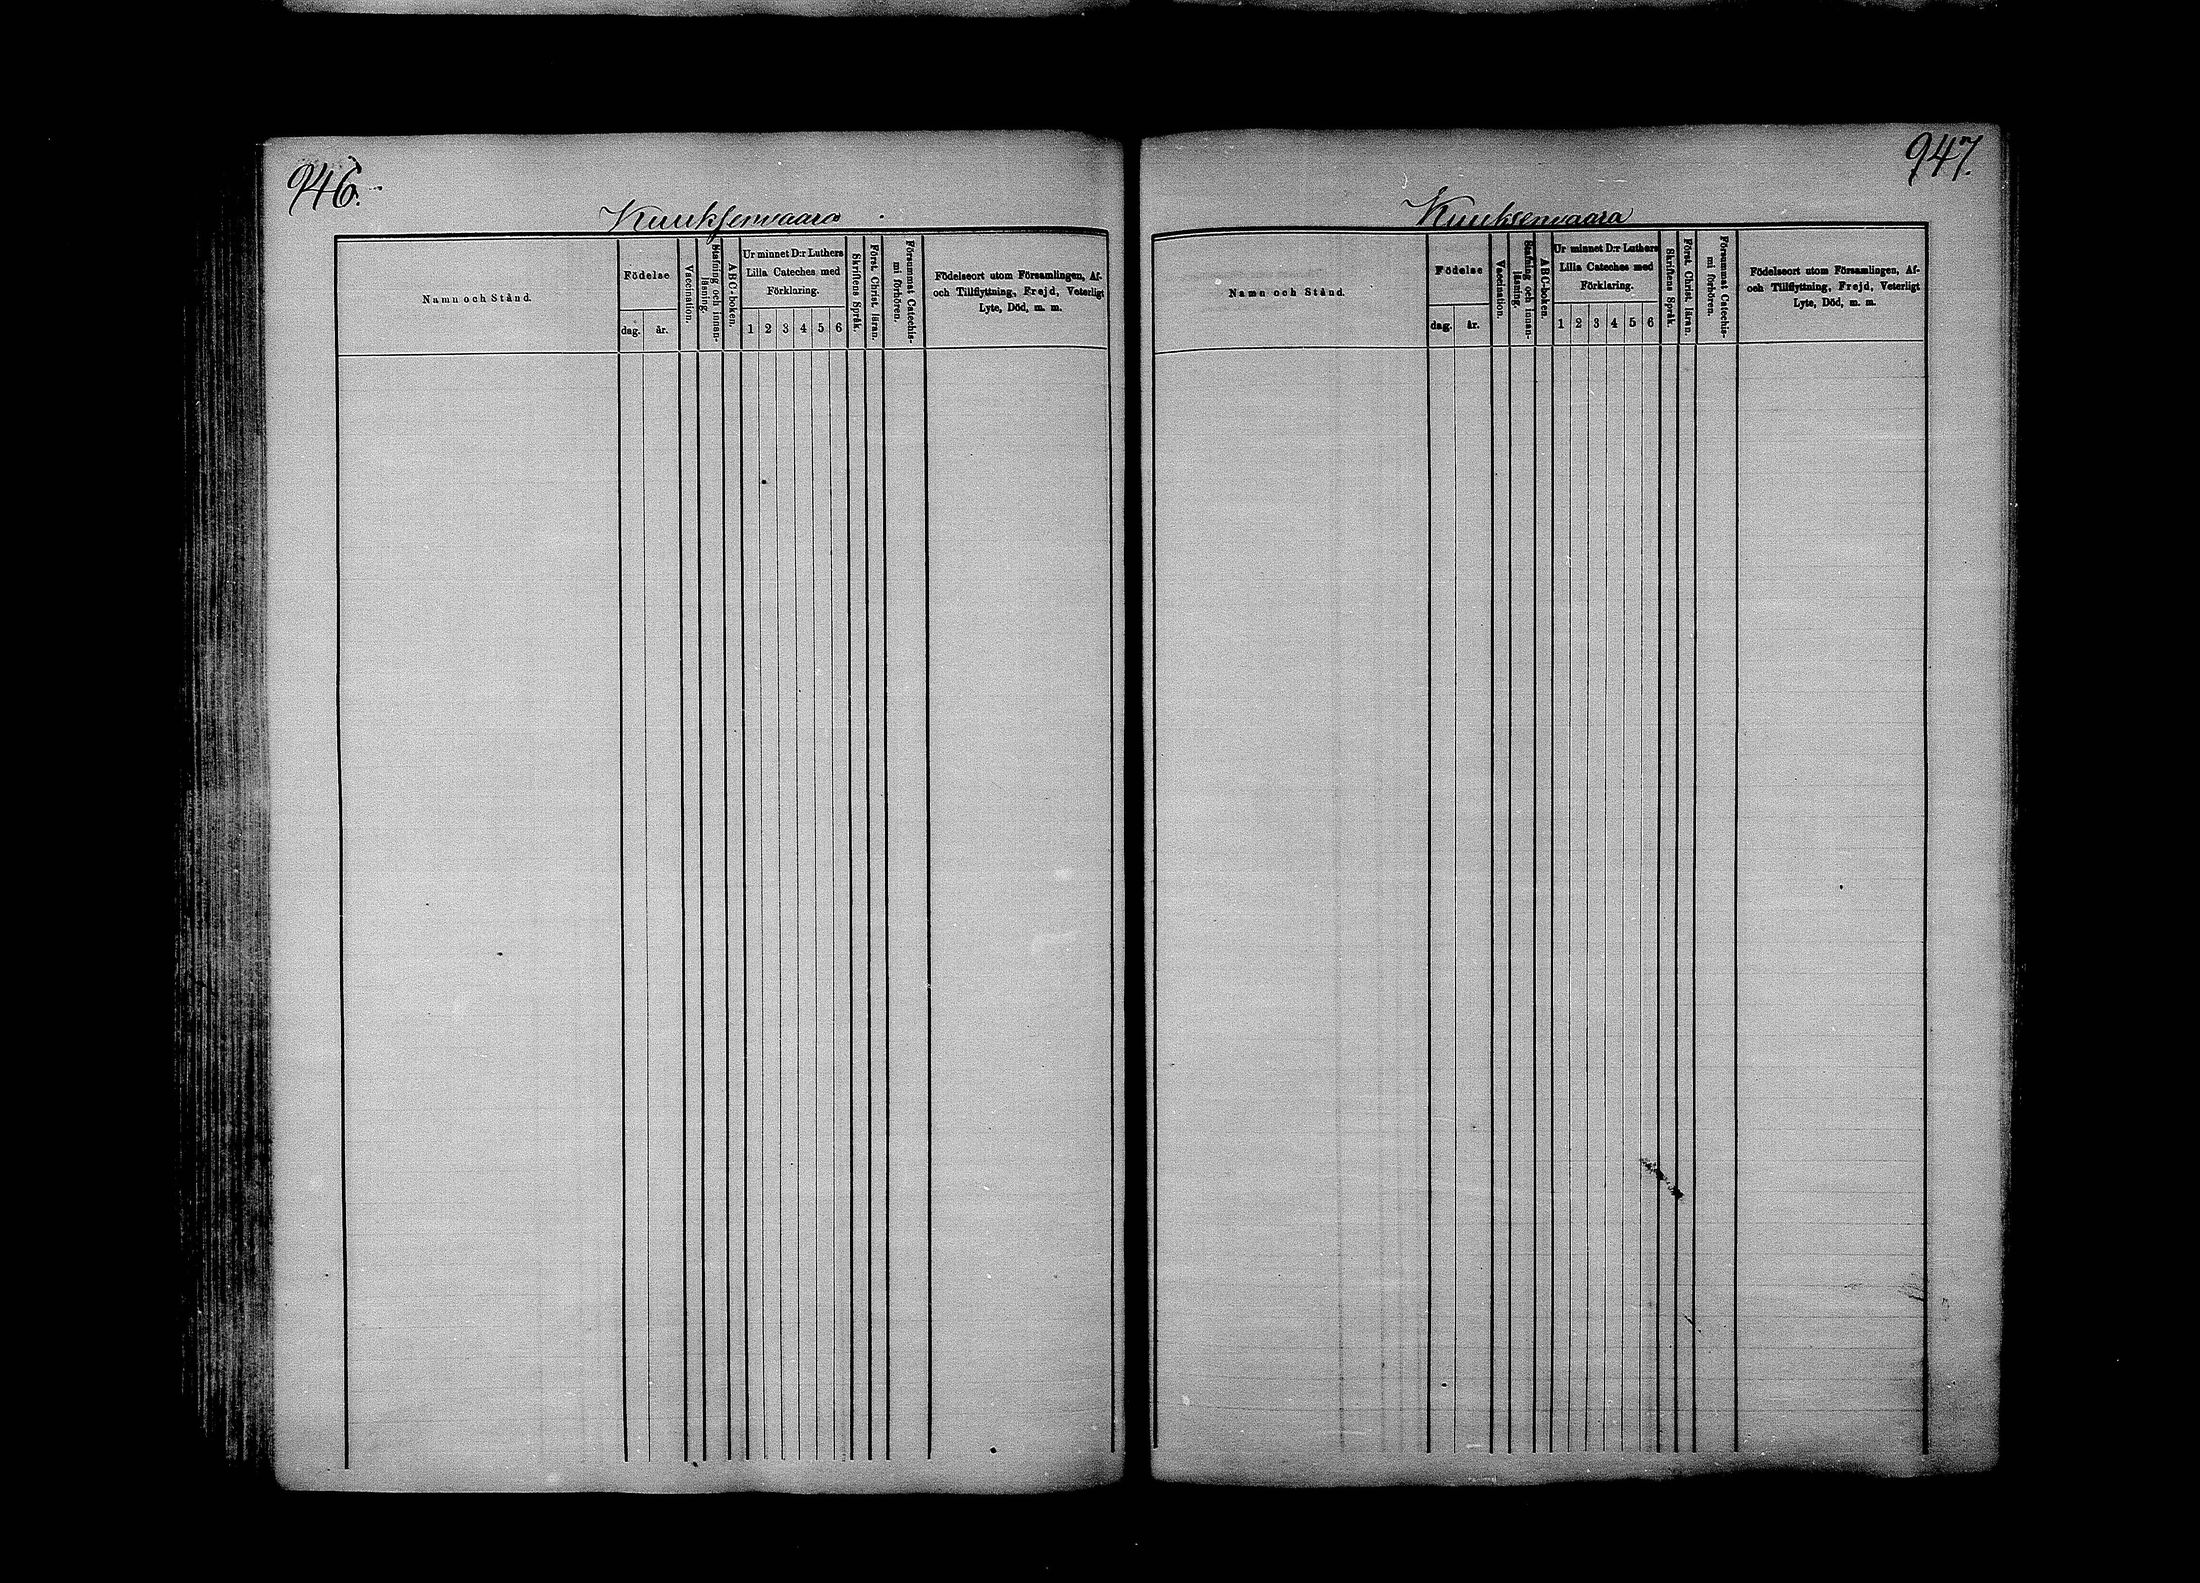 946.
Kuuksenvaara
Namn och Stånd.
Födelse
dag.
år.
Vaccination.
Stafning och innan-
läsning.
ABC-boken.
Ur minnet D:r Luthers
Lilla Cateches med
Förklaring.
1 2 3 4 5 6
Skriftens Språk.
Först. Christ. läran.
Försummat Catechis-
mi förhören.
Födelseort utom Församlingen, Af-
och Tillflyttning, Frejd, Veterligt
Lyte, Död, m. m.
947.
Kuuksenvaara
Namn och Stånd.
Födelse
dag.
år.
Vaccination.
Stafning och innan-
läsning.
ABC-boken.
Ur minnet D:r Luthers
Lilla Cateches med
Förklaring.
1 2 3 4 5 6
Skriftens Språk.
Först. Christ. läran.
Försummat Catechis-
mi förhören.
Födelseort utom Församlingen, Af-
och Tillflyttning, Frejd, Veterligt
Lyte, Död, m. m.